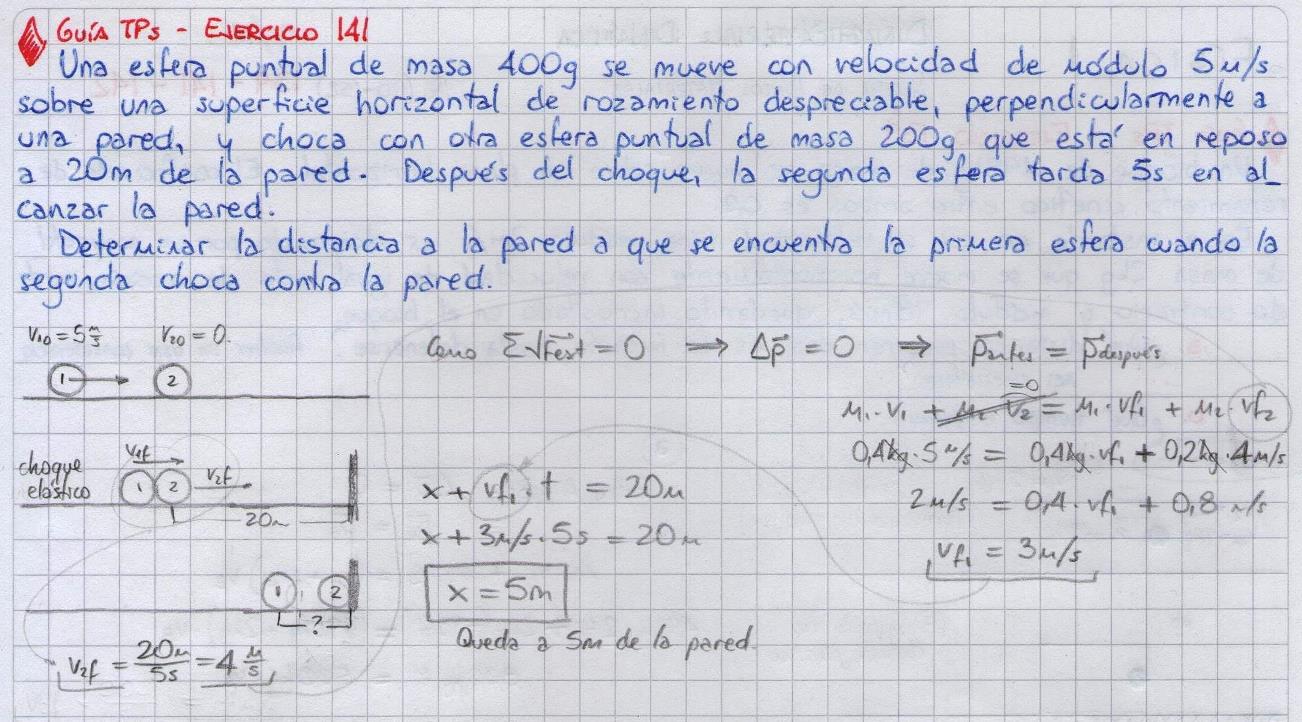 GUÍA TPs - EJERCICIO 141
Una esfera puntual de masa 400g se mueve con velocidad de módulo 5m/s
sobre una superficie horizontal de rozamiento despreciable, perpendicularmente a
una pared, y choca con otra esfera puntual de masa 200g que está en reposo
a 20m de la pared. Después del choque, la segunda esfera tarda 5s en al_
canzar la pared.
Determinar la distancia a la pared a que se encuentra la primera esfera cuando la
segunda choca contra la pared.
V10 = 5 m/s V20 = 0.
1 2
choque
elástico
V1f
V2f
1 2
20m
1 2
?
V2f = 20m/5s = 4 m/s
Como Σ√Fext = 0 ⟹ Δp = 0 ⟹ pantes = pdespués
=0
m1 · v1 + m2 · v2 = m1 · vf1 + m2 · vf2
0,4kg · 5 m/s = 0,4kg · vf1 + 0,2kg · 4m/s
2m/s = 0,4 · vf1 + 0,8 m/s
vf1 = 3m/s
x + vf1 · t = 20m
x + 3m/s · 5s = 20m
x = 5m
Queda a 5m de la pared.